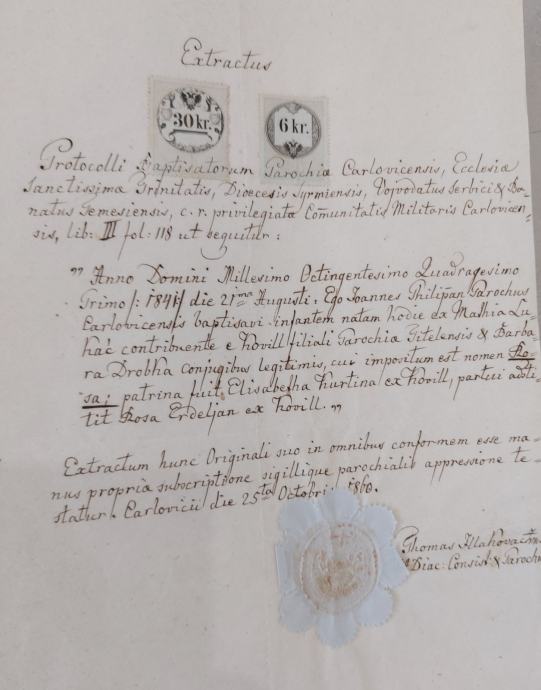 Extractus
30 kr.
6 kr.
Protocolli Baptisatorum Parochiæ Carlovicensis, Ecclesiæ
Sanctissimæ Trinitatis, Dioecesis Syrmiensis, Vojvodatus Serbici & Ba-
natus Temesiensis, c. r. privilegiatæ Com̄unitatis Militaris Carlovicen-
sis, lib: III fol: 118 ut sequitur:
„ Anno Domini Millesimo Octingentesimo Quadragesimo
Primo /: 1841 :/ die 21ma Augusti. Ego Joannes Philipan Parochus
Carlovicensis baptisavi infantem natam hodie ex Mathia Lu-
hač contribuente e Kovill filiali Parochiæ Titelensis & Barba-
ra Drobha conjugibus legitimis, cui impositum est nomen Ro-
sa; patrina fuit Elisabetha Kurtina ex Kovill, partui adsti-
tit Rosa Erdeljan ex Kovill. „
Extractum hunc Originali suo in omnibus conformem esse ma-
nus propriæ subscriptione sigillique parochialis appressione te-
statur. Carlovicii die 25ta Octobris 1860.
Thomas
Diac: Consist: & Paroch